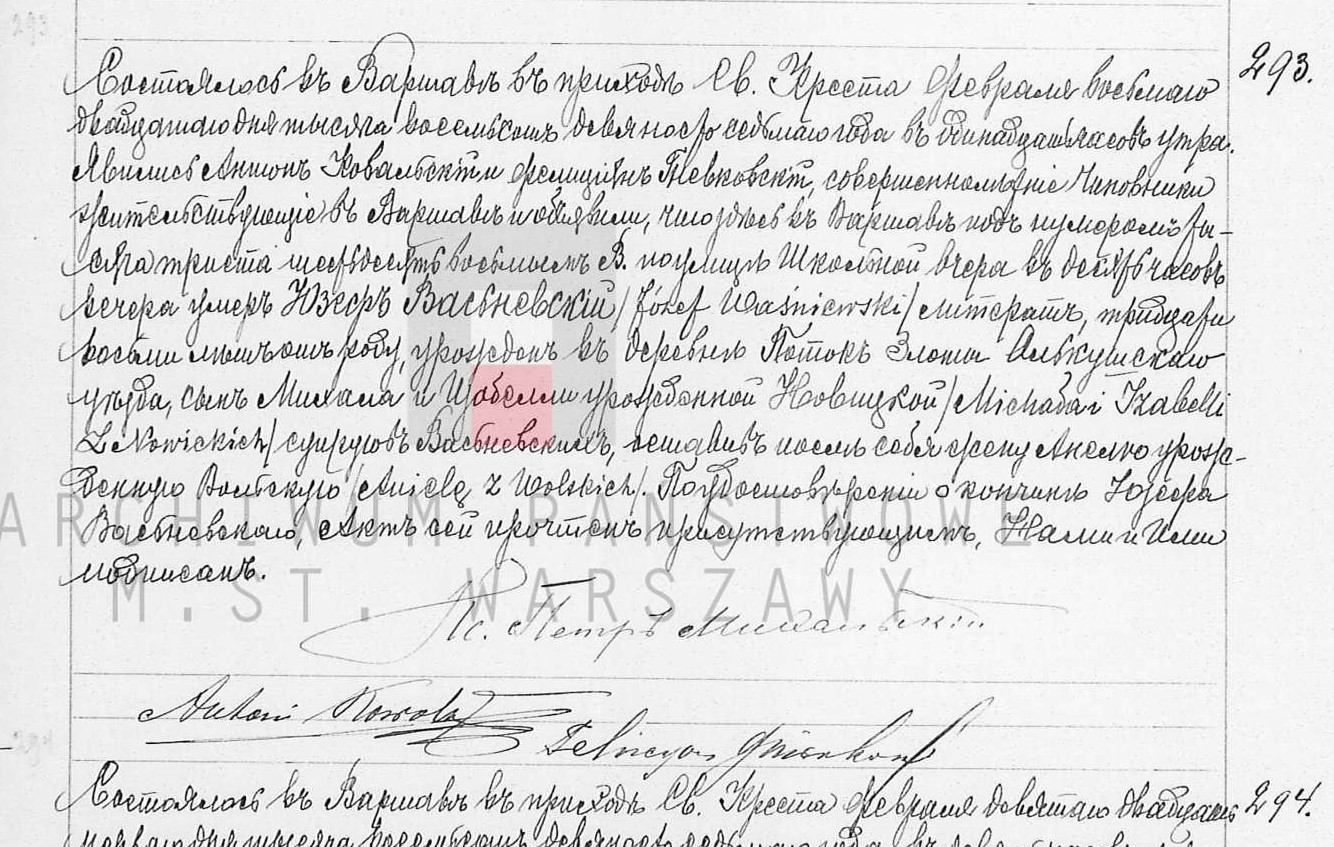 293
293.
Состоялось въ Варшавѣ въ приходѣ Св. Креста Февраля восьмаго
двадцатаго дня тысяча восемьсотъ девяносто седьмаго года въ одинадцать часовъ утра.
Явились Антонъ Ковальскiй и Фелицiянъ Гневковскiй, совершеннолѣтнiе Чиновники
жительствующiе въ Варшавѣ и объявили, что здѣсь въ Варшавѣ подъ нумеромъ ты-
сяча триста шестьдесятъ восьмымъ В. по улицѣ Школьной вчера въ десять часовъ
вечера умеръ Юзефъ Васьневскiй /Józef Waśniewski/ литератъ, тридцати
восьми лѣтъ отъ роду, урожденъ въ деревнѣ Потокъ Злоты Олькушскаго
уѣзда, сынъ Михала и Изабелли урожденной Новицкой /Michała i Izabelli
z Nowickich/ супруговъ Васьневскихъ, оставивъ послѣ себя жену Анелю урож-
денную Вольскую /Anielę z Wolskich/. По удостовѣренiи о кончинѣ Юзефа
Васьневскаго, Актъ сей прочтенъ присутствующимъ, Нами и Ими
подписанъ.
ARCHIWUM PAŃSTWOWE
M.ST. WARSZAWY
Кс. Петръ
Antoni Kowalski
Felicyan Gniewkowski
294
Состоялось въ Варшавѣ въ приходѣ Св. Креста Февраля девятаго двадцать
294.
перваго дня тысяча восемьсотъ девяносто седьмаго года